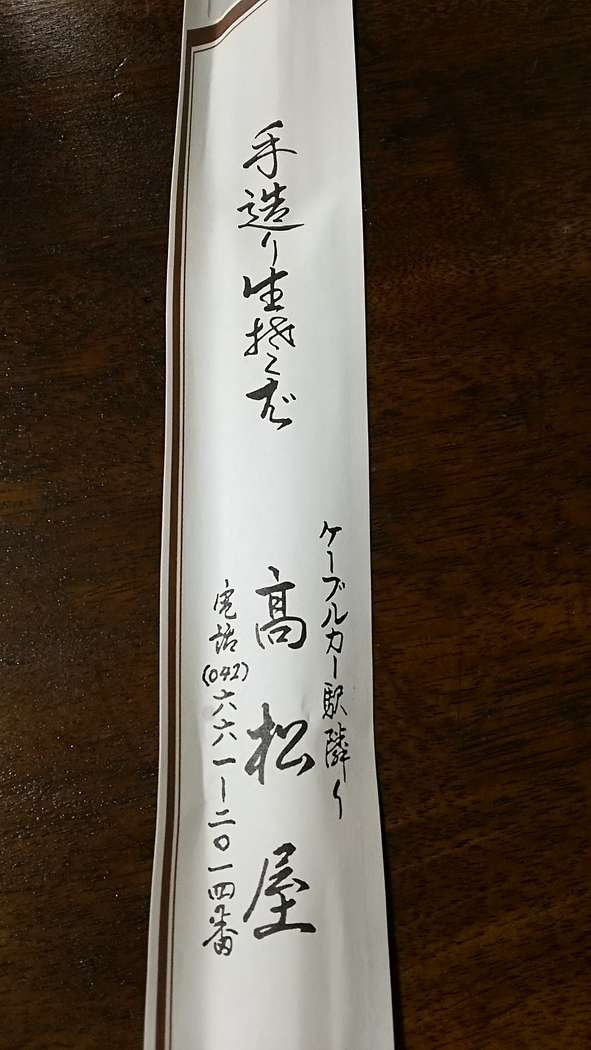 手造り生そば
ケーブルカー駅隣り
髙松屋
電話(042)六六一ー二〇一四番